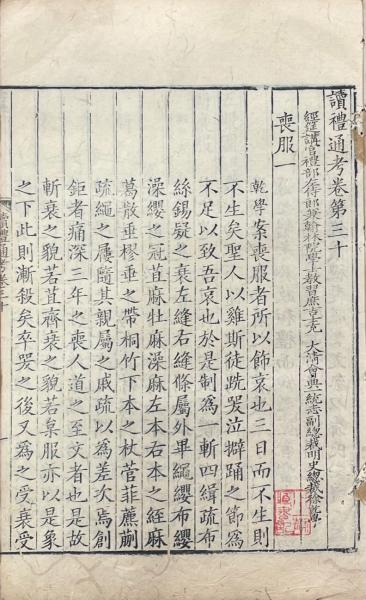 讀禮通考卷第三十
經筵講官禮部侍郎兼翰林院學士教習庶吉士充 大清會典一統志副總裁明史總裁徐乾學
喪服一
乾學案喪服者所以飾哀也三日而不生則
不生矣聖人以雞斯徒跣哭泣擗踊之節為
不足以致吾哀也於是制為一斬四緝疏布
絲錫疑之衰左縫右縫條屬外畢繩纓布纓
澡纓之冠苴麻牡麻澡麻左本右本之絰麻
葛散垂樛垂之帶桐竹下本之杖菅菲薦蒯
疏繩之屨隨其親屬之戚疏以為差次焉創
鉅者痛深三年之喪人道之至文者也是故
斬衰之貌若苴齊衰之貌若枲服亦以是象
之下此則漸殺矣卒哭之後又為之受衰受
讀禮通考卷三十